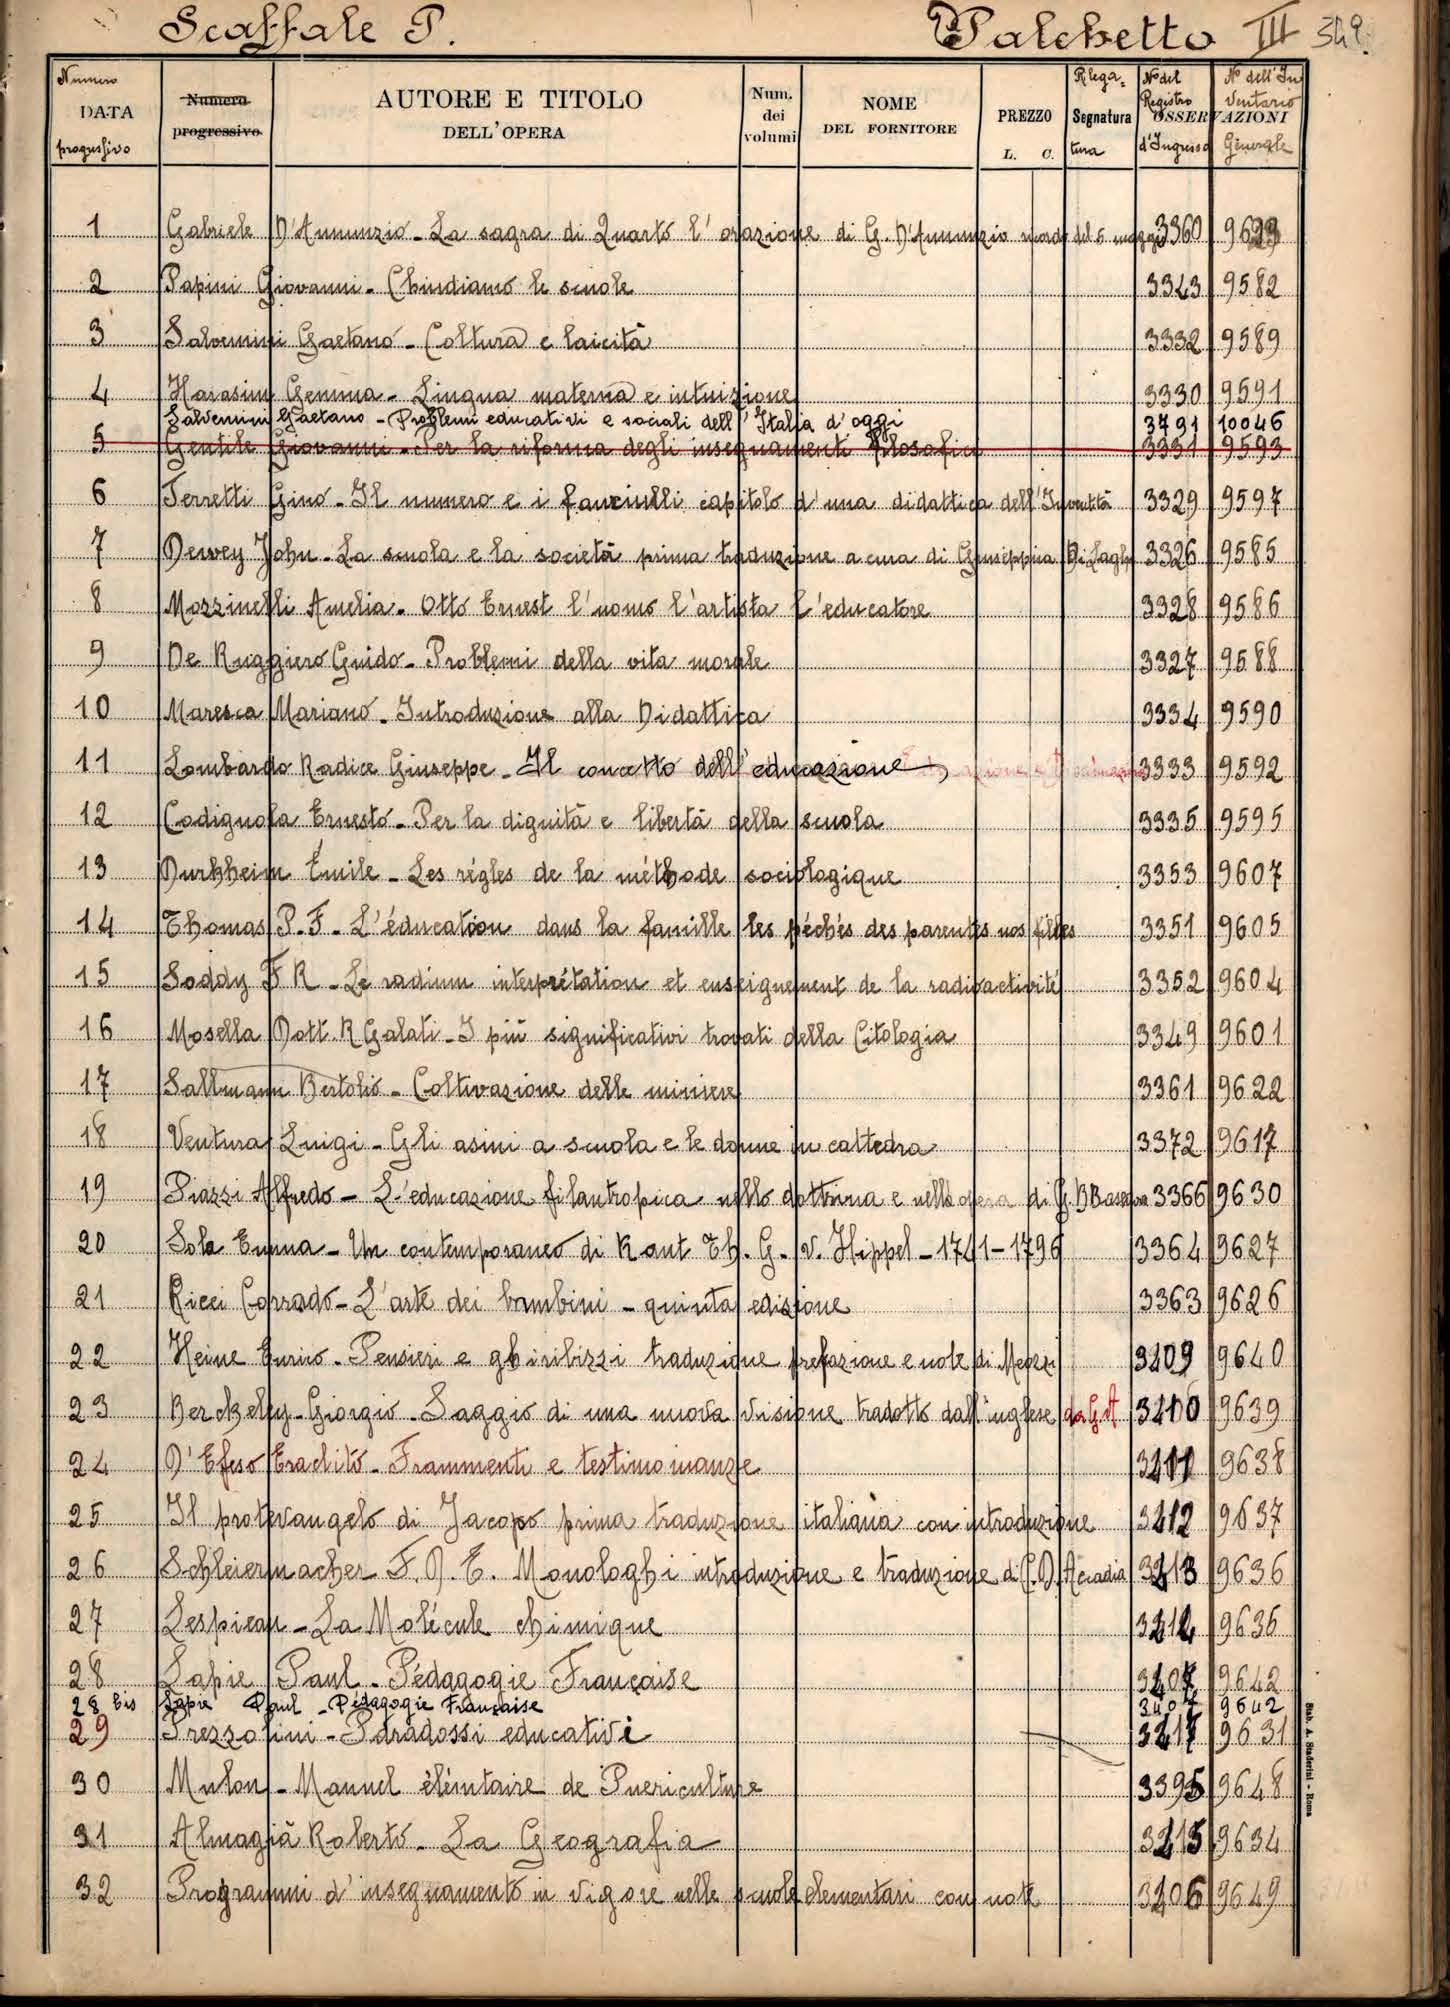 Scaffale P. Palchetto III 349.
Numero DATA progressivo
Numero progressivo
AUTORE E TITOLO DELL'OPERA
Num. dei volumi
NOME DEL FORNITORE
PREZZO L. C.
Rlega= Segnatura tura
N° del Registro d'Ingresso
N° dell'In Ventario Generale
OSSERVAZIONI
1 Gabriele D'Annunzio - La sagra di Quarto l'orazione di G. D'Annunzio del 5 maggio 3360
2 Papini Giovanni - Chiudiamo le scuole 3343 9582
3 Salvemini Gaetano - Coltura e laicità 3332 9589
4 Harasim Gemma - Lingua materna e intuizione 3330 9591
Salvemini Gaetano - Problemi educativi e sociali dell'Italia d'oggi 3791 10046
5 Gentile Giovanni - Per la riforma degli insegnamenti filosofici 3331 9593
6 Ferretti Gino - Il numero e i fanciulli capitolo d'una didattica dell' 3329 9597
7 Dewey John - La scuola e la società prima traduzione a cura di Giuseppina Di Laghi 3326 9585
8 Mozzinelli Amelia - Otto Ernest l'uomo l'artista l'educatore 3328 9586
9 De Ruggiero Guido - Problemi della vita morale 3327 9588
10 Maresca Mariano - Introduzione alla Didattica 3334 9590
11 Lombardo Radice Giuseppe - Il concetto dell'educazione 3333 9592
12 Codignola Ernesto - Per la dignità e libertà della scuola 3335 9595
13 Durkheim Émile - Les règles de la méthode sociologique 3353 9607
14 Thomas P. F. - L'éducation dans la famille les péchés des parentes nos filles 3351 9605
15 Soddy F R - Le radium interprétation et enseignement de la radioactivité 3352 9604
16 Mosella Dott. R Galati - I più significativi trovati della Citologia 3349 9601
17 Sallmann Bertolio - Coltivazione delle miniere 3361 9622
18 Ventura Luigi - Gli asini a scuola e le donne in cattedra 3372 9617
19 Piazzi Alfredo - L'educazione filantropica nella dottrina e nell'opera di G. B Basedow 3366 9630
20 Sola Emma - Un contemporaneo di Kant Th. G. v. Hippel - 1741 - 1796 3364 9627
21 Ricci Corrado - L'arte dei bambini - quinta edizione 3363 9626
22 Heine Enrico - Pensieri e ghiribizzi traduzione prefazione e note di 3409 9640
23 Berckeley - Giorgio - Saggio di una nuova visione tradotto dall'inglese da G. A 3410 9639
24 D'Efeso Eraclito - Frammenti e testimonianze 3411 9638
25 Il protovangelo di Jacopo prima traduzione italiana con introduzione 3412 9637
26 Schleiermacher F. D. E. Monologhi introduzione e traduzione di C. D. Accadia 3413 9636
27 Lespieau - La Molécule chimique 3414 9635
28 Lapie Paul - Pédagogie Française 3407 9642
28 bis Lapie Paul - Pédagogie Française 3407 9642
29 Prezzolini - Paradossi educativi 3417 9631
30 Mulon - Manuel élémentaire de Puericulture 3395 9648
31 Almagià Roberto - La Geografia 3415 9634
32 Programmi d'insegnamento in vigore nelle scuole elementari con note 3406 9649
Stab. A. Staderini - Roma